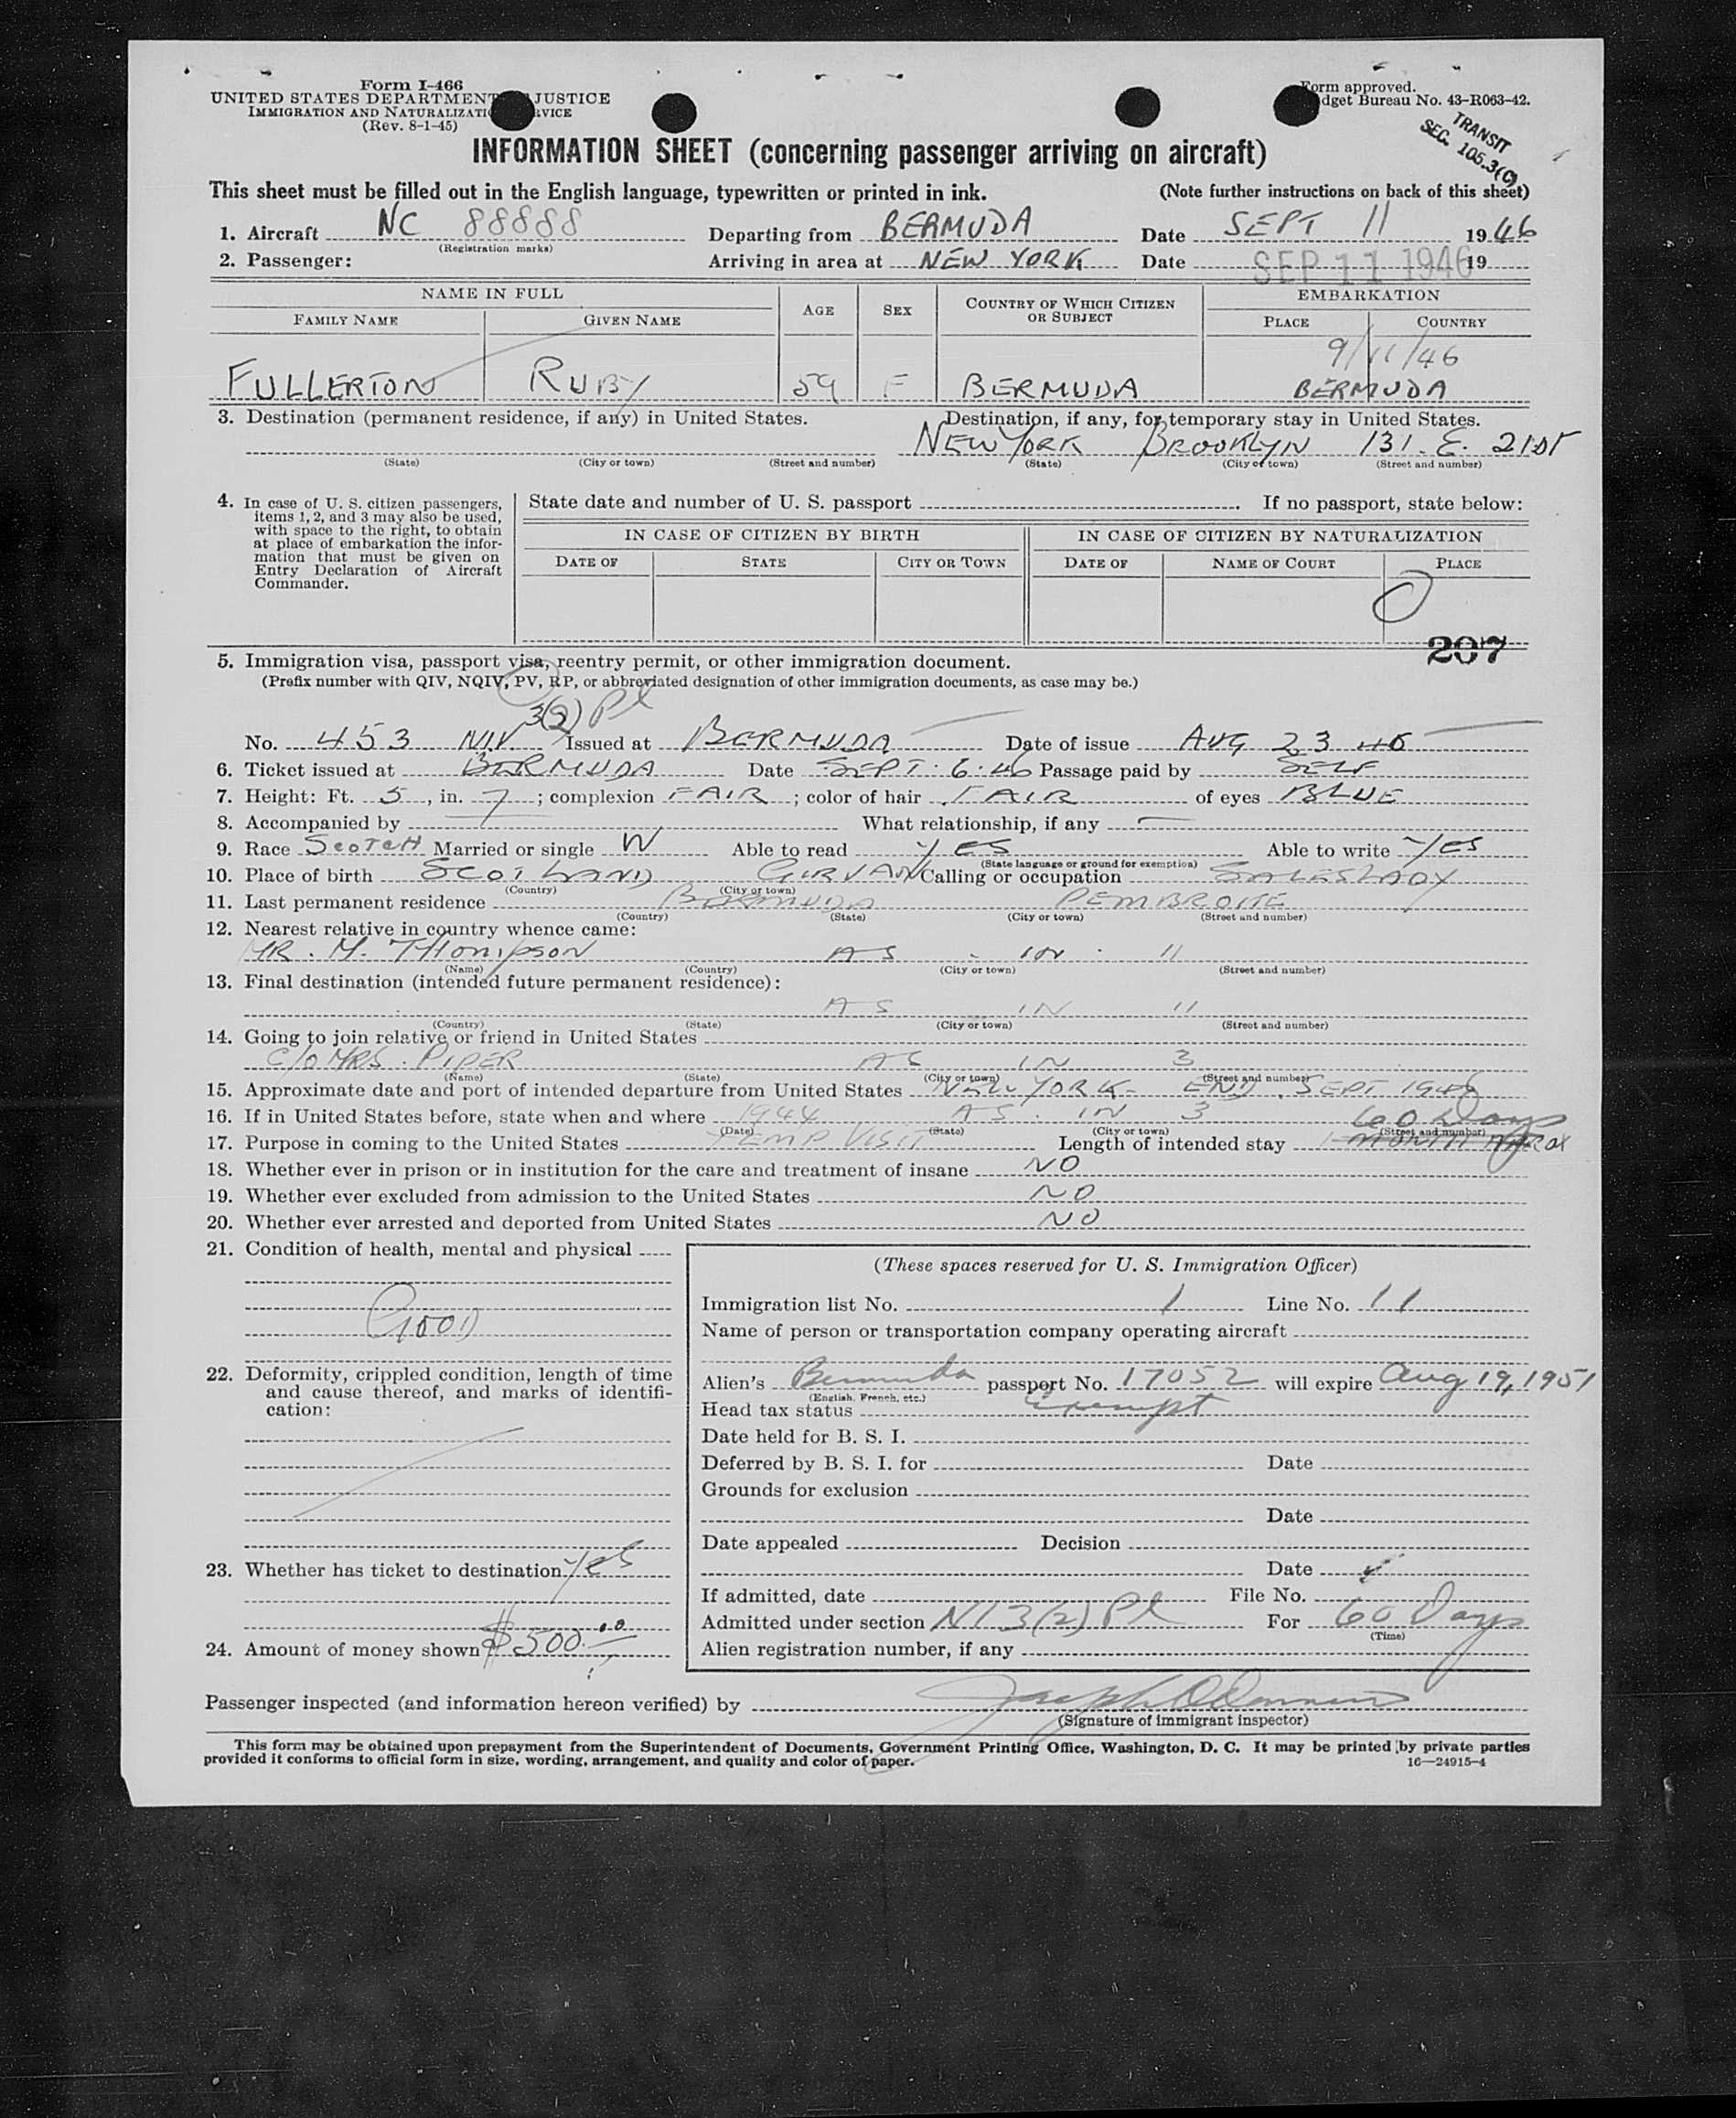 Form I-466
UNITED STATES DEPARTMENT JUSTICE
IMMIGRATION AND NATURALIZATI RVICE
(Rev. 8-1-45)
Form approved.
dget Bureau No. 43-R063-42.
TRANSIT
SEC. 105.3(C)
INFORMATION SHEET (concerning passenger arriving on aircraft)
This sheet must be filled out in the English language, typewritten or printed in ink. (Note further instructions on back of this sheet)
1. Aircraft NC 88888 Departing from BERMUDA Date SEPT 11 1946
(Registration marks)
2. Passenger: Arriving in area at NEW YORK Date SEP 11 1946 19
NAME IN FULL AGE SEX COUNTRY OF WHICH CITIZEN OR SUBJECT EMBARKATION
FAMILY NAME GIVEN NAME PLACE COUNTRY
9/11/46
FULLERTON RUBY 59 F BERMUDA BERMUDA
3. Destination (permanent residence, if any) in United States. Destination, if any, for temporary stay in United States.
NEW YORK BROOKLYN 131. E. 21ST
(State) (City or town) (Street and number) (State) (City or town) (Street and number)
4. In case of U. S. citizen passengers, items 1, 2, and 3 may also be used, with space to the right, to obtain at place of embarkation the information that must be given on Entry Declaration of Aircraft Commander.
State date and number of U. S. passport . If no passport, state below:
IN CASE OF CITIZEN BY BIRTH IN CASE OF CITIZEN BY NATURALIZATION
DATE OF STATE CITY OR TOWN DATE OF NAME OF COURT PLACE
207
5. Immigration visa, passport visa, reentry permit, or other immigration document.
(Prefix number with QIV, NQIV, PV, RP, or abbreviated designation of other immigration documents, as case may be.)
3(2) Pl
No. 453 NIV. Issued at BERMUDA Date of issue AUG 23 46
6. Ticket issued at BERMUDA Date SEPT. 6. 46 Passage paid by SELF
7. Height: Ft. 5, in. 7; complexion FAIR; color of hair FAIR of eyes BLUE
8. Accompanied by What relationship, if any —
9. Race SCOTCH Married or single W Able to read YES Able to write YES
(State language or ground for exemption)
10. Place of birth SCOTLAND GIRVAN Calling or occupation SALESLADY
(Country) (City or town)
11. Last permanent residence BERMUDA PEMBROKE
(Country) (State) (City or town) (Street and number)
12. Nearest relative in country whence came:
MR. M. THOMPSON AS IN 11
(Name) (Country) (City or town) (Street and number)
13. Final destination (intended future permanent residence):
AS IN 11
(Country) (State) (City or town) (Street and number)
14. Going to join relative or friend in United States
C/O MRS. PIPER AS IN 3
(Name) (State) (City or town) (Street and number)
15. Approximate date and port of intended departure from United States NEW YORK - END. SEPT 1946
16. If in United States before, state when and where 1944 AS. IN 3 60 Days
(Date) (State) (City or town) (Street and number)
17. Purpose in coming to the United States TEMP VISIT Length of intended stay 1 MONTH
18. Whether ever in prison or in institution for the care and treatment of insane NO
19. Whether ever excluded from admission to the United States NO
20. Whether ever arrested and deported from United States NO
21. Condition of health, mental and physical
GOOD
22. Deformity, crippled condition, length of time and cause thereof, and marks of identification:
23. Whether has ticket to destination yes
24. Amount of money shown $500.00
(These spaces reserved for U. S. Immigration Officer)
Immigration list No. 1 Line No. 11
Name of person or transportation company operating aircraft
Alien's Bermuda passport No. 17052 will expire Aug 19, 1951
(English, French, etc.)
Head tax status Exempt
Date held for B. S. I.
Deferred by B. S. I. for Date
Grounds for exclusion
Date
Date appealed Decision
Date
If admitted, date File No.
Admitted under section NI 3(2) Pl For 60 Days
(Time)
Alien registration number, if any
Passenger inspected (and information hereon verified) by Joseph
(Signature of immigrant inspector)
This form may be obtained upon prepayment from the Superintendent of Documents, Government Printing Office, Washington, D. C. It may be printed by private parties
provided it conforms to official form in size, wording, arrangement, and quality and color of paper.
16—24915-4